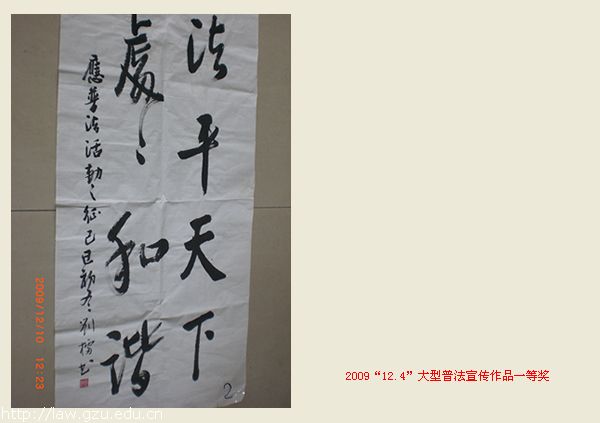 法平天下
處々和谐
應普法活動之征己丑初冬刘
2
2009/12/10 12:23
http://law.gzu.edu.cn
2009“12.4”大型普法宣传作品一等奖